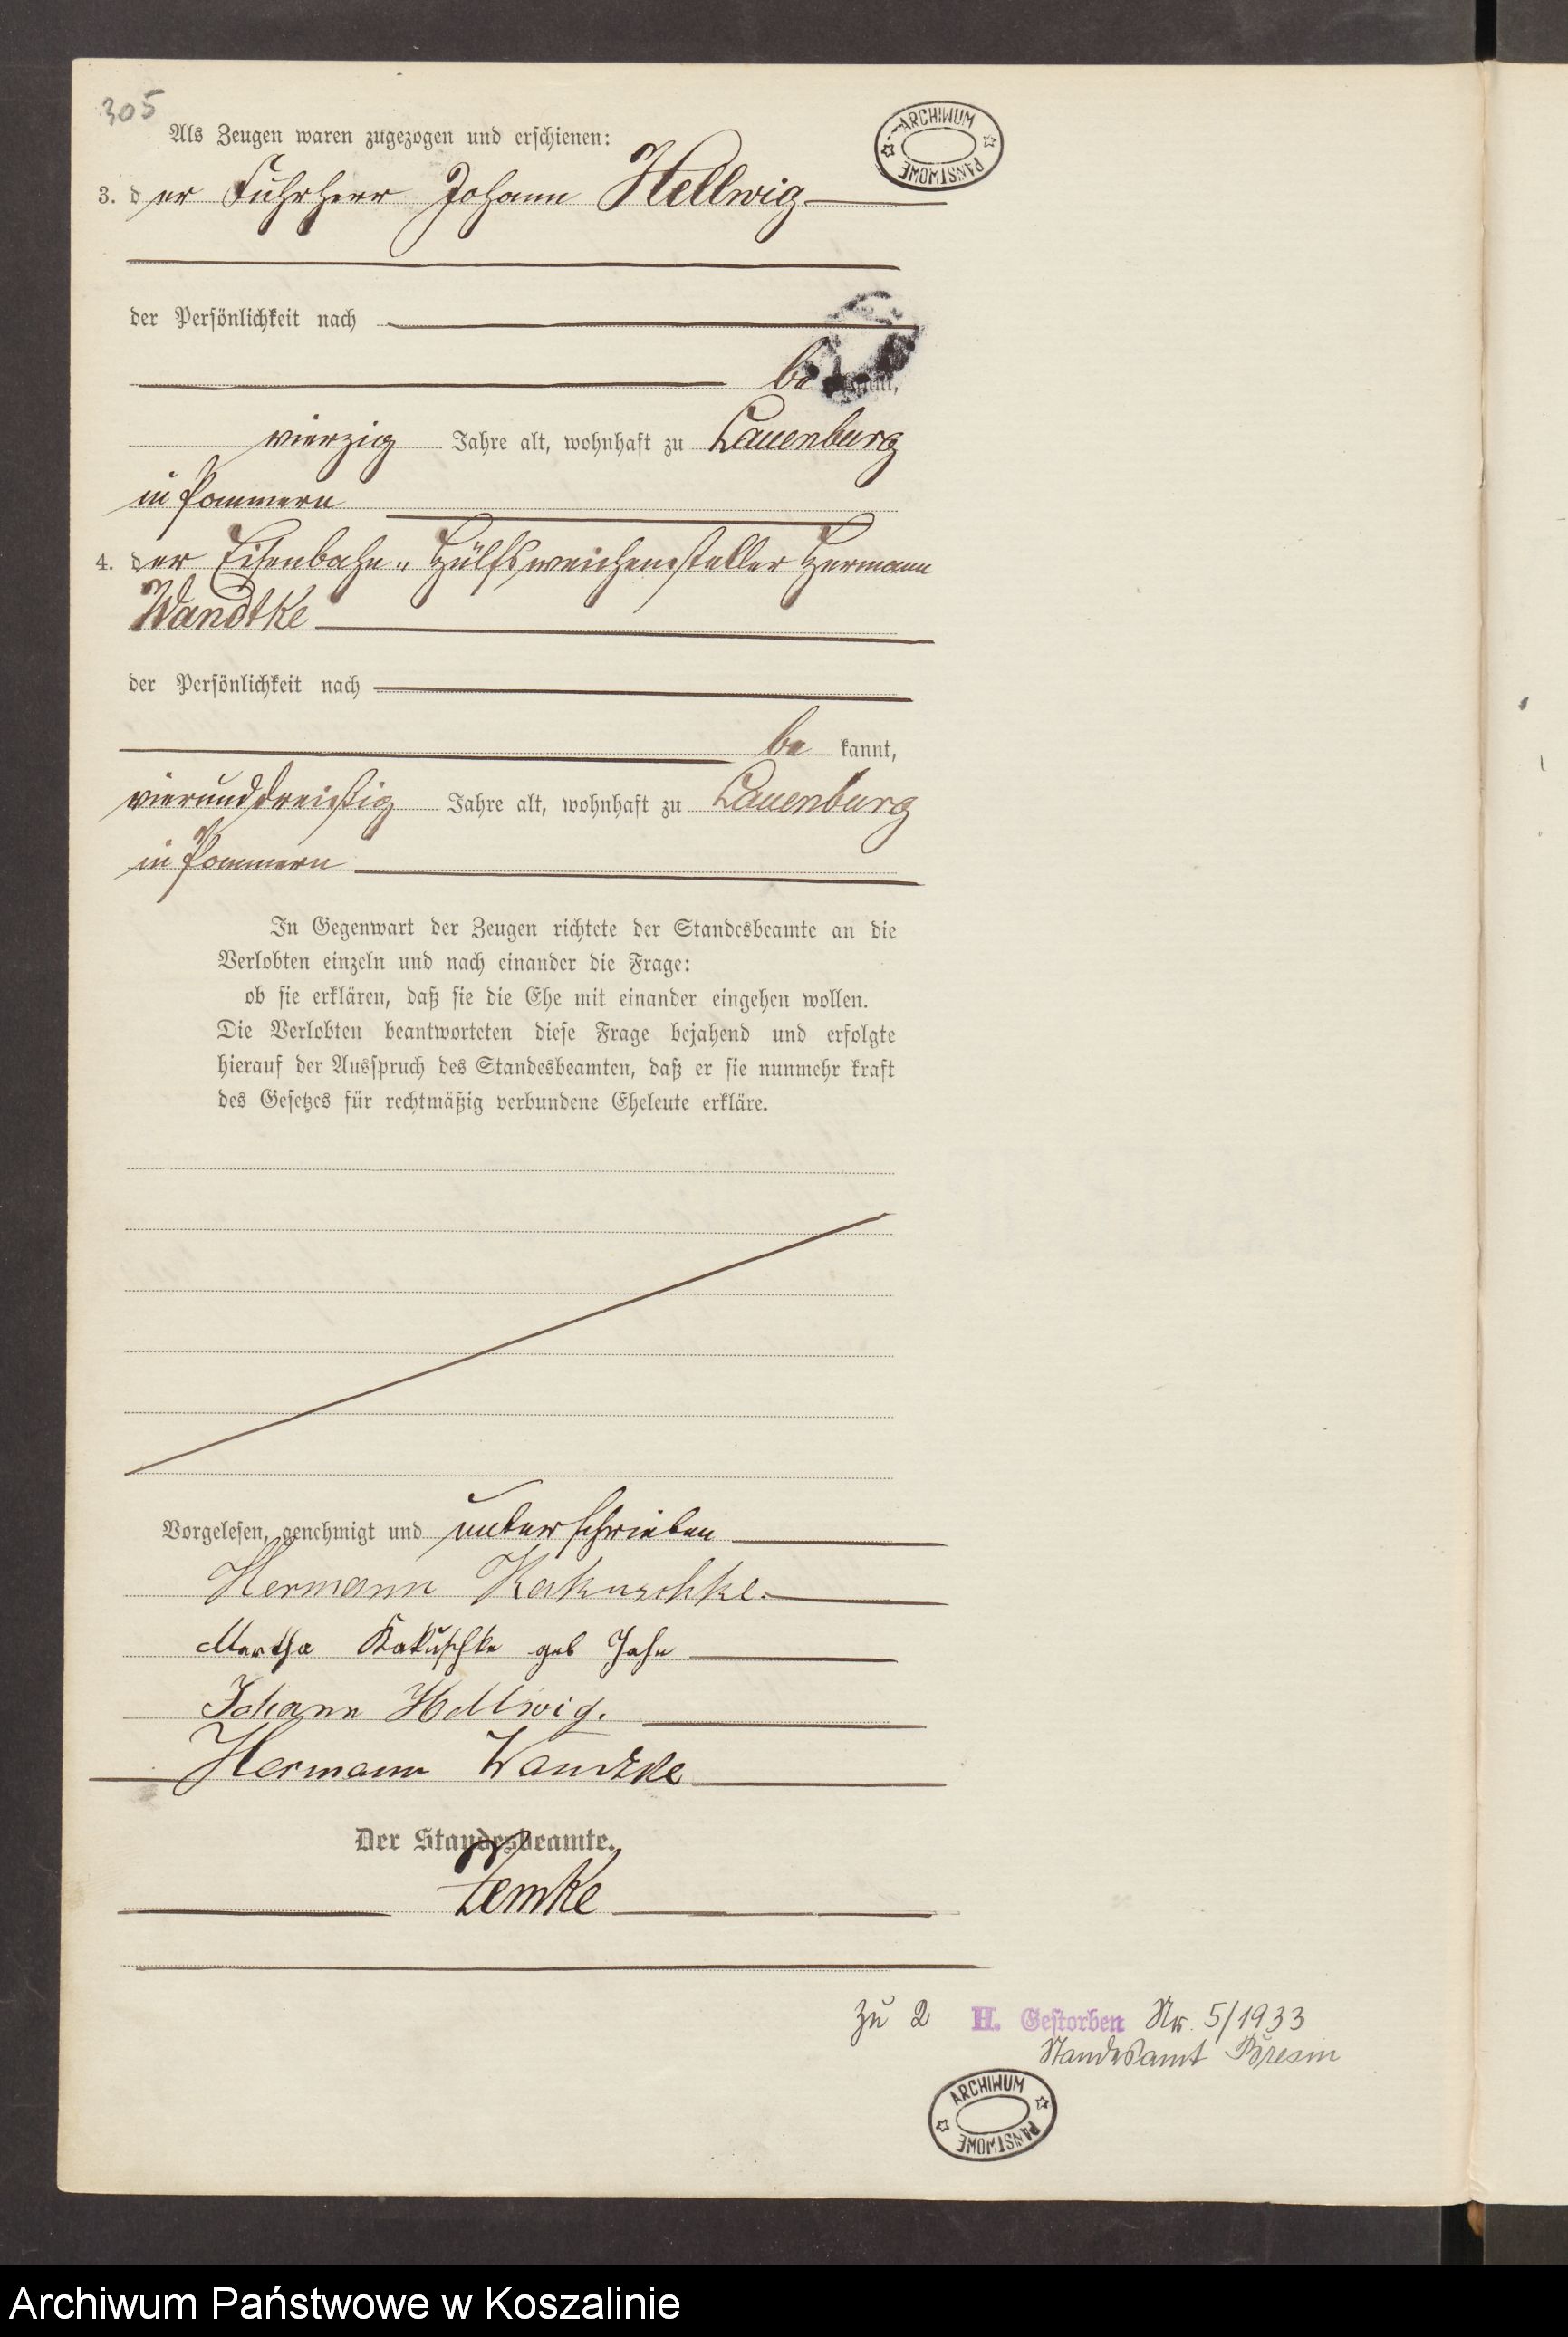 305
ARCHIWUM PAŃSTWOWE
Als Zeugen waren zugezogen und erschienen:
3. der Fuhrherr Johann Hellwig
der Persönlichkeit nach
be kannt,
vierzig Jahre alt, wohnhaft zu Lauenburg
in Pommern
4. der Eisenbahn-Hülfsweichensteller Hermann
Wandtke
der Persönlichkeit nach
be kannt,
vierunddreißig Jahre alt, wohnhaft zu Lauenburg
in Pommern
In Gegenwart der Zeugen richtete der Standesbeamte an die
Verlobten einzeln und nach einander die Frage:
ob sie erklären, daß sie die Ehe mit einander eingehen wollen.
Die Verlobten beantworteten diese Frage bejahend und erfolgte
hierauf der Ausspruch des Standesbeamten, daß er sie nunmehr kraft
des Gesetzes für rechtmäßig verbundene Eheleute erkläre.
Vorgelesen, genehmigt und unterschrieben
Hermann Kakuschke.
Martha Kakuschke geb Jahn
Johann Hellwig.
Hermann Wandtke
Der Standesbeamte.
Lemke
zu 2 H. Gestorben Nr. 5/1933
Standesamt Bresin
ARCHIWUM PAŃSTWOWE
Archiwum Państwowe w Koszalinie